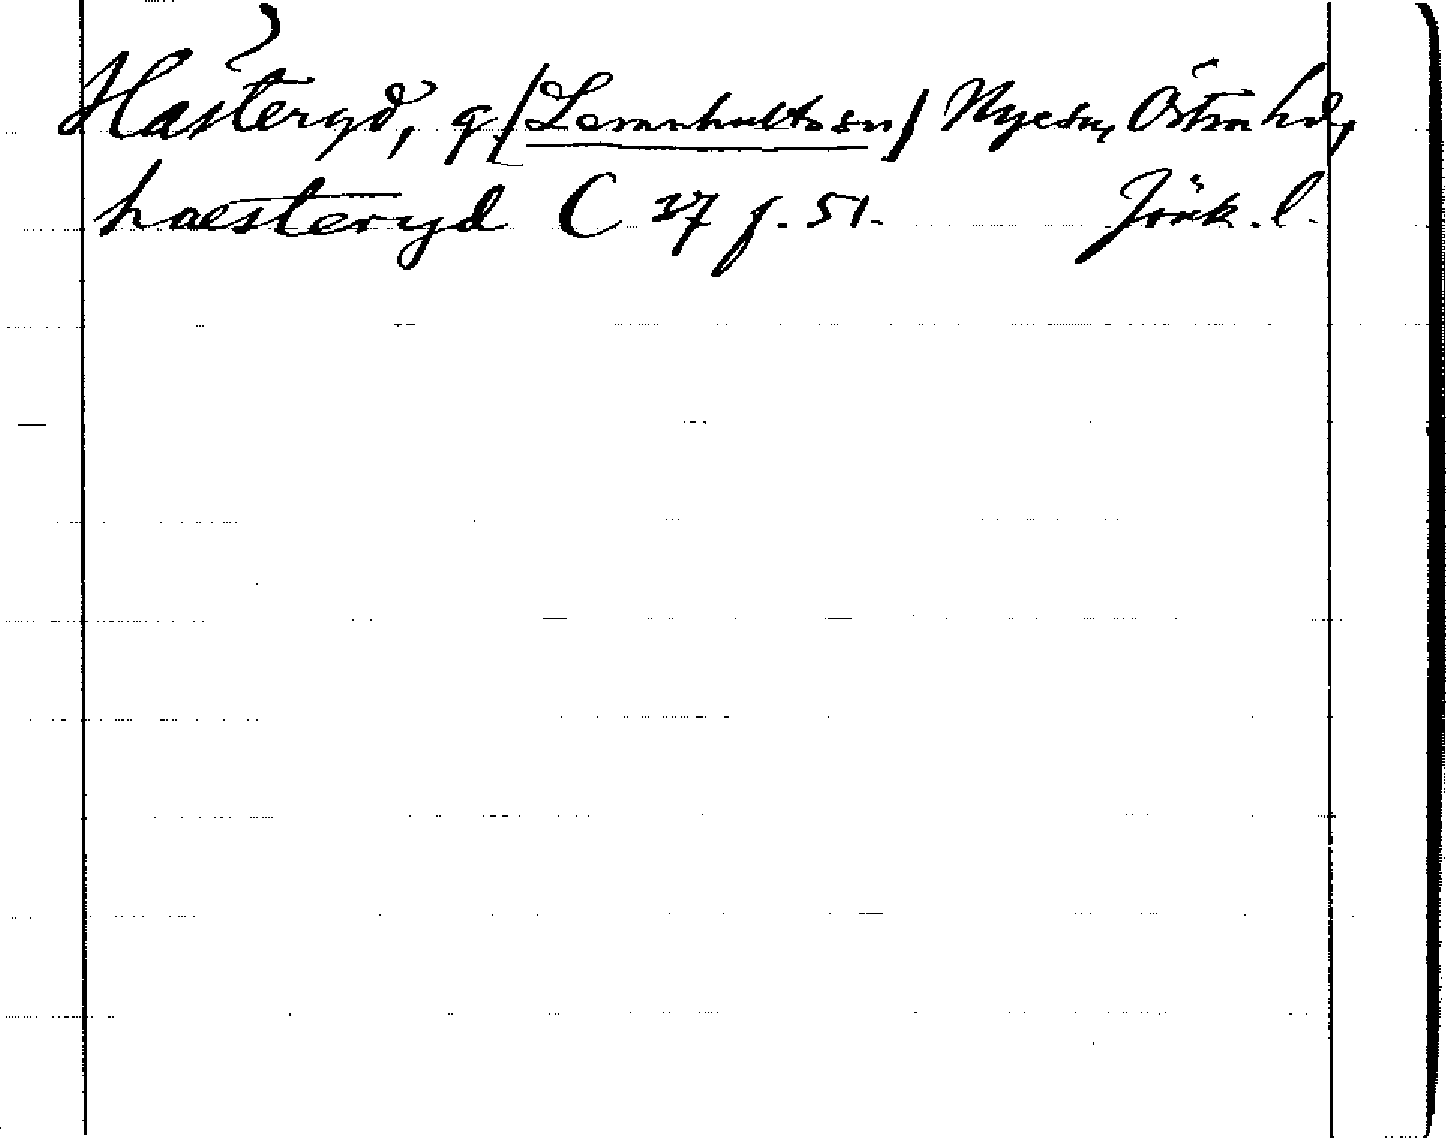 Hästeryd, g/Lemnhults sn/ Nye sn, Östra hd,
haesteryd C 37 f. 51. Jönk. l.